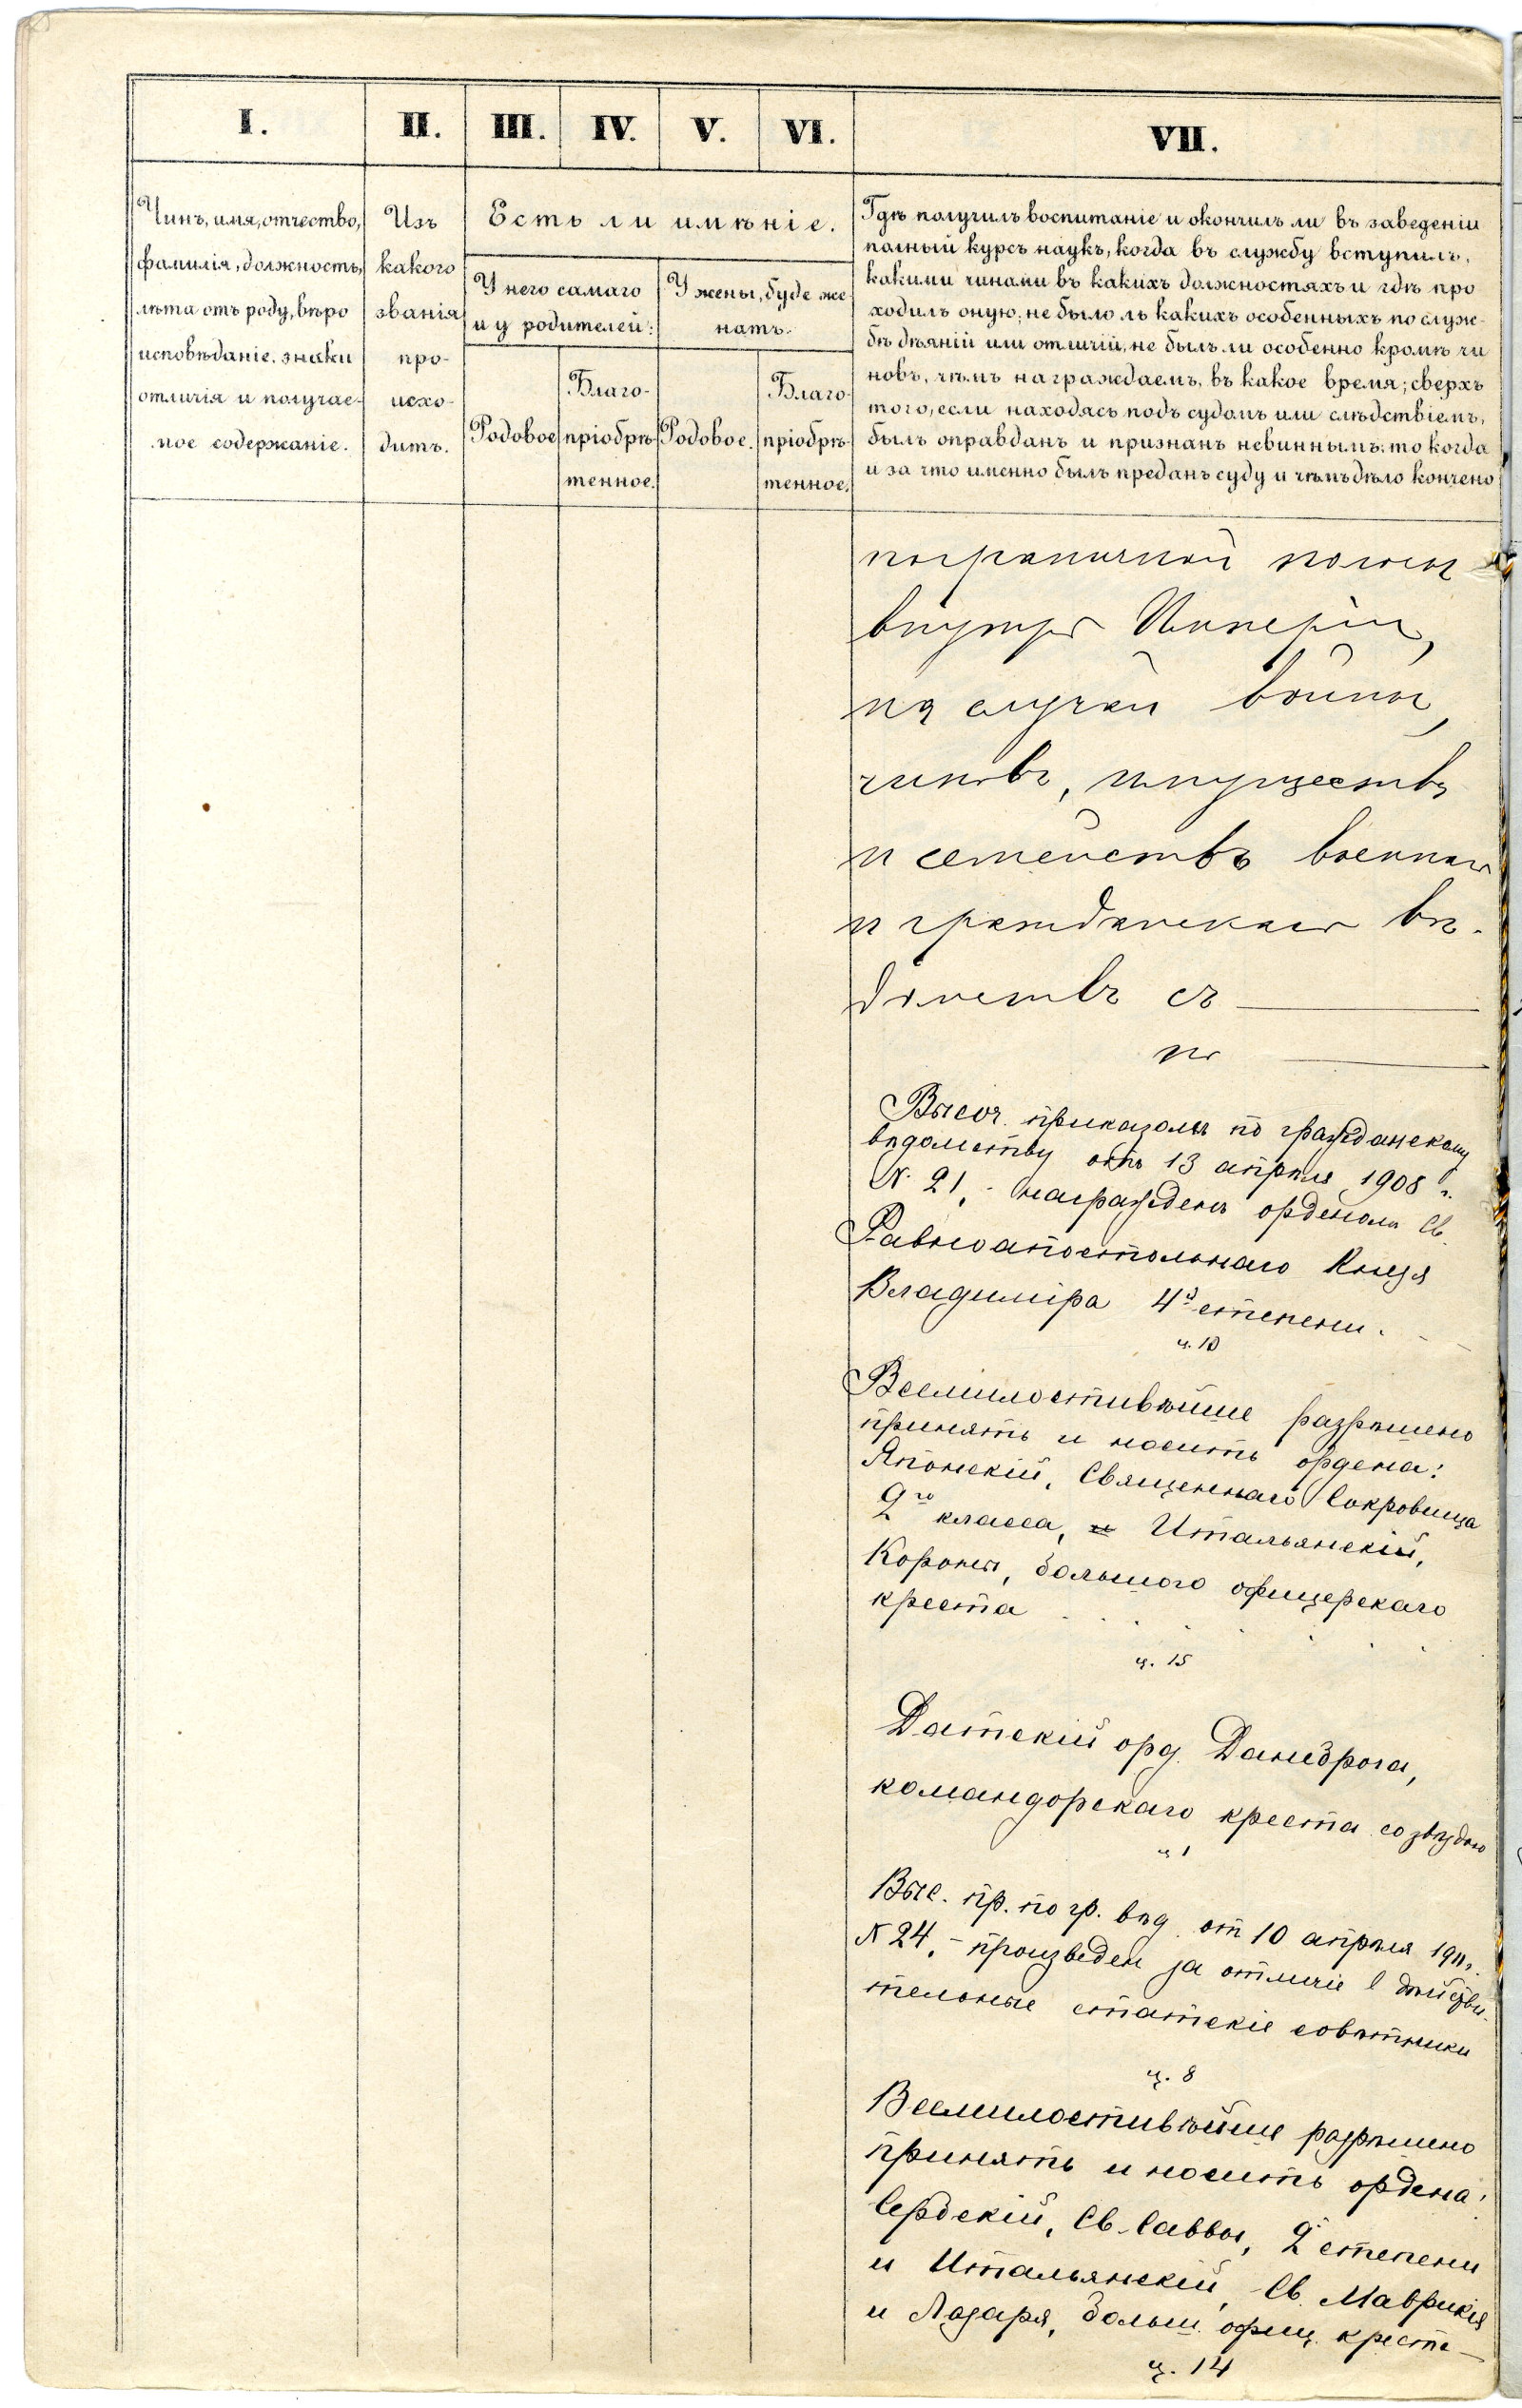 I.
II.
III.
IV.
V.
VI.
VII.
Чинъ, имя, отчество,
фамилія, должность,
лѣта отъ роду, вѣро
исповѣданіе, знаки
отличія и получае-
мое содержаніе.
Изъ
какого
званія
про-
исхо-
дитъ.
Есть ли имѣніе.
У него самаго
и у родителей:
У жены, буде же
натъ.
Родовое
Благо-
пріобрѣ-
тенное.
Родовое.
Благо-
пріобрѣ-
тенное.
Гдѣ получилъ воспитаніе и окончилъ ли въ заведеніи
полный курсъ наукъ, когда въ службу вступилъ,
какими чинами въ какихъ должностяхъ и гдѣ про
ходилъ оную; не было ль какихъ особенныхъ по служ-
бѣ дѣяній или отличій, не былъ ли особенно кромѣ чи
новъ, чѣмъ награждаемъ, въ какое время; сверхъ
того, если находясь подъ судомъ или слѣдствіемъ,
былъ оправданъ и признанъ невиннымъ: то когда
и за что именно былъ преданъ суду и чѣмъ дѣло кончено
пограничной полосы
внутрь Имперіи,
на случай войны,
чиновъ, имущества
и семействъ военнаго
и гражданскаго вѣ-
домствъ съ
по
Высоч. приказомъ по гражданскому
вѣдомству отъ 13 апрѣля 1908 г.
№ 21, - награжденъ орденомъ Св.
Равноапостольнаго Князя
Владиміра 4й степени.
ч. 10
Всемилостивѣйше разрѣшено
принять и носить ордена:
Японскій, Священнаго Сокровища
2го класса, и Итальянскій,
Короны, большого офицерскаго
креста
ч. 15
Датскій орд. Данеброга,
командорскаго креста со звѣздою
ч 1
Выс. пр. по гр. вѣд. от 10 апрѣля 1911 г.
№ 24, - произведен за отличіе в дѣйстви-
тельные статскіе совѣтники
ч. 8
Всемилостивѣйше разрѣшено
принять и носить ордена:
Сербскій, Св. Саввы, 2й степени
и Итальянскій, Св. Маврикія
и Лазаря, больш. офиц. креста
ч. 14